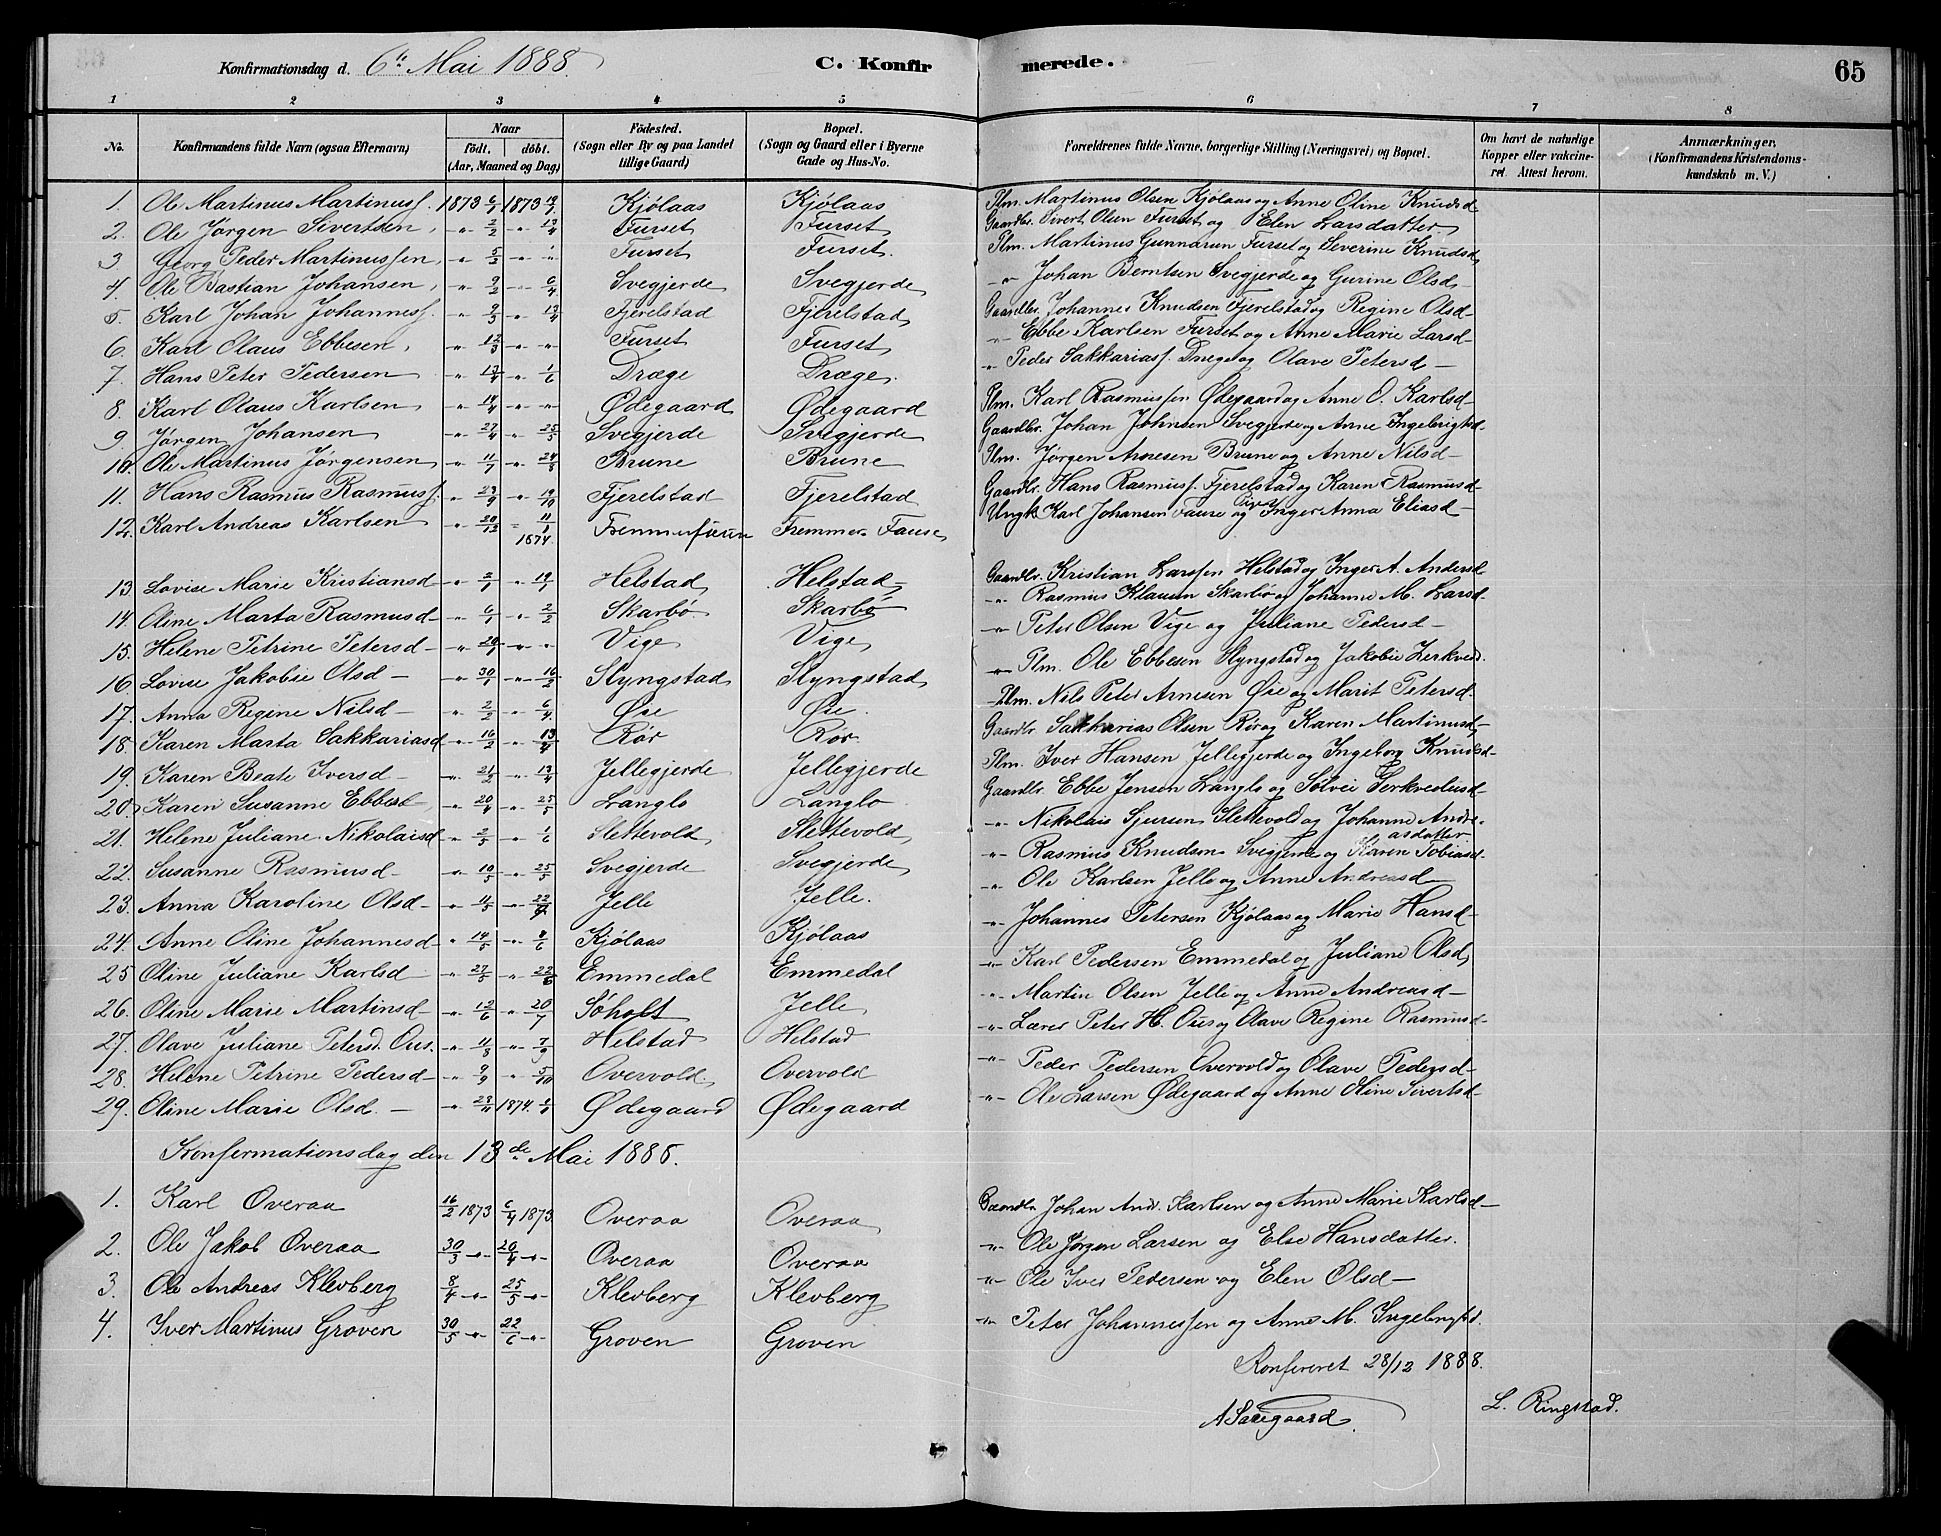 Konfirmationsdag d. 6te Mai 1888. C. Konfirmerede. 65
1 2 3 4 5 6 7 8
No. Konfirmandens fulde Navn (ogsaa Efternavn) Naar födt. döbt. (Aar, Maaned og Dag) Födested. (Sogn eller By og paa Landet tillige Gaard) Bopæl. (Sogn og Gaard eller i Byerne Gade og Hus-No. Forældrenes fulde Navne, borgerlige Stilling (Næringsvei) og Bopæl. Om havt de naturlige Kopper eller vakcineret. Attest herom. Anmærkninger. (Konfirmandens Kristendomskundskab m. V.)
1. Ole Martinus Martinuss. 1873 6/1 1873 Kjölaas Kjölaas Plm. Martinus Olsen Kjölaas og Anne Oline Knudsd
2. Ole Jørgen Sivertsen, -"- 2/2 -"- 13/4 Furset Furset Gaardbr. Sivert Olsen Furset og Elen Larsdatter
3 Georg Peder Martinussen, -"- 5/2 -"- " Furset Furset. Plm. Martinus Gunnarsen Furset og Severine Knudsd
4. Ole Bastian Johansen, -"- 9/2 -"- 6/4 Svegjerde Svegjerde -"- Johan Berntsen Svegjerde og Gurine Olsd
5. Karl Johan Johanness. -"- 9/3 -"- 13/4 Fjerelstad Fjerelstad Gaardbr. Johannes Knudsen Fjerelstad og Regine Olsd-
6. Karl Olaus Ebbesen, -"- 12/3 -"- -"- Furset Furset -"- Ebbe Karlsen Furset og Anne Marie Larsd-
7. Hans Peter Pedersen -"- 13/4 -"- 1/6 Dræge Dræge. -"- Peder Sakkariass. Dræge og Olave Petersd-
8. Karl Olaus Karlsen -"- 14/4 -"- -"- Ødegaard Ødegaard Plm. Karl Rasmussen Ødegaard og Anne O. Karlsd-
9 Jørgen Johansen -"- 27/4 -"- 25/5 Svegjerde Svegjerde Gaardbr. Johan Johnsen Svegjerde og Anne Ingebrigtsd-
10. Ole Martinus Jørgensen -"- 11/7 -"- 24/8 Brune Brune Plm. Jørgen Arnesen Brune og Anne Nilsd-
11. Hans Rasmus Rasmuss. -"- 23/9 -"- 19/10 Fjerelstad Fjerelstad Gaardbr. Hans Rasmuss. Fjerelstad og Karen Rasmusd-
12. Karl Andreas Karlsen -"- 20/12 -"- 11/1 1874. Fremmerfause Fremmer Fause Ungk Karl Johansen Fause og Pige Inger Anna Eliasd-
13. Lovise Marie Kristiansd- -"- 2/1 -"- 19/1 Helstad Helstad- Gaardbr. Kristian Larssen Helstad og Inger A. Andersd
14. Oline Marta Rasmusd- -"- 6/1 -"- 2/2 Skarbø. Skarbø -"- Rasmus Klausen Skarbø og Johanne M. Larsd-
15. Helene Petrine Petersd- -"- 20/1 -"- " Vige Vige -"- Peter Olsen Vige og Juliane Pedersd-
16 Lovise Jakobie Olsd- -"- 30/1 -"- 16/2 Klyngstad Klyngstad -"- Plm. Ole Ebbesen Klyngstad og Jakobie
17. Anna Regine Nilsd- -"- 2/2 -"- 6/4 Øie Øie. -Plm. Nils Peter Arnesen Øie og Marit Petersd.
18. Karen Marta Sakkariasd -"- 16/2 -"- 13/4 Rör Rör. Gaardbr Sakkarias Olsen Rör og Karen Martinusd-
19. Karen Beate Iversd- -"- 21/2 -"- 13/4 Jellegjerde Jellegjerde Plm. Iver Hansen Jellegjerde og Ingeborg Knudsd-
20. Karen Susanne Ebbesd -"- 20/4 -"- 25/5 Langlo Langlo Gaardbr. Ebbe Jensen Langlo og Sølvei
21. Helene Juliane Nikolaisd -"- 2/5 -"- 1/6 Slettevold Slettevold -"- Nikolais Sjursen Slettevold og Johanne Andreasdatter
22. Susanne Rasmusd- -"- 10/5 -"- 25/5 Svegjerde Svegjerde -"- Rasmus Knudsen Svegjerde og Karen Tobiasd-
23. Anna Karoline Olsd- -"- 11/5 -"- Jelle Jelle. -"- Ole Karlsen Jelle og Anne Andreasd-
24. Anne Oline Johannesd- -"- 14/5 -"- 8/6 Kjölaas Kjölaas -"- Johannes Petersen Kjölaas og Marie Hansd-
25 Oline Juliane Karlsd -"- 27/5 -"- 22/6 Emmedal Emmedal -"- Karl Pedersen Emmedal og Juliane Olsd
26. Oline Marie Martinsd- -"- 12/6 -"- 20/7 Søholt Jelle -"- Martin Olsen Jelle og Anne Andreasd-
27. Olave Juliane Petersd. Ous. -"- 11/8 -"- 7/9 Helstad Helstad -"- Lærer Peter H. Ous og Olave Regine Rasmusd-
28. Helene Petrine Pedersd- -"- 9/9 -"- 5/10 Overvold Overvold -"- Peder Pedersen Overvold og Olave Pedersd-
29. Oline Marie Olsd. - -"- 23/11 1874. 1/1 Ødegaard Ødegaard -"- Ole Larsen Ødegaard og Anne Oline Sivertsd-
Konfermationsdag den 13de Mai 1888.
1. Karl Overaa 16/2 1873 6/4 1873 Overaa Overaa Gaardbr Johan And. Karlsen og Anne Marie Karlsd-
2. Ole Jakob Overaa 30/3 -"- 20/4 -"- Overaa Overaa -"- Ole Jørgen Larsen og Else Hansdatter.
3. Ole Andreas Klevberg 8/4 -"- 25/5 -"- Klevberg Klevberg -"- Ole Iver Pedersen og Elen Olsd-
4. Iver Martinus Groven 30/5 -"- 22/6 -"- Groven Groven -"- Peter Johannessen og Anne M. Ingebrigtsd.
Konfereret 28/12 1888.
A Saxegaard. L. Ringstad.